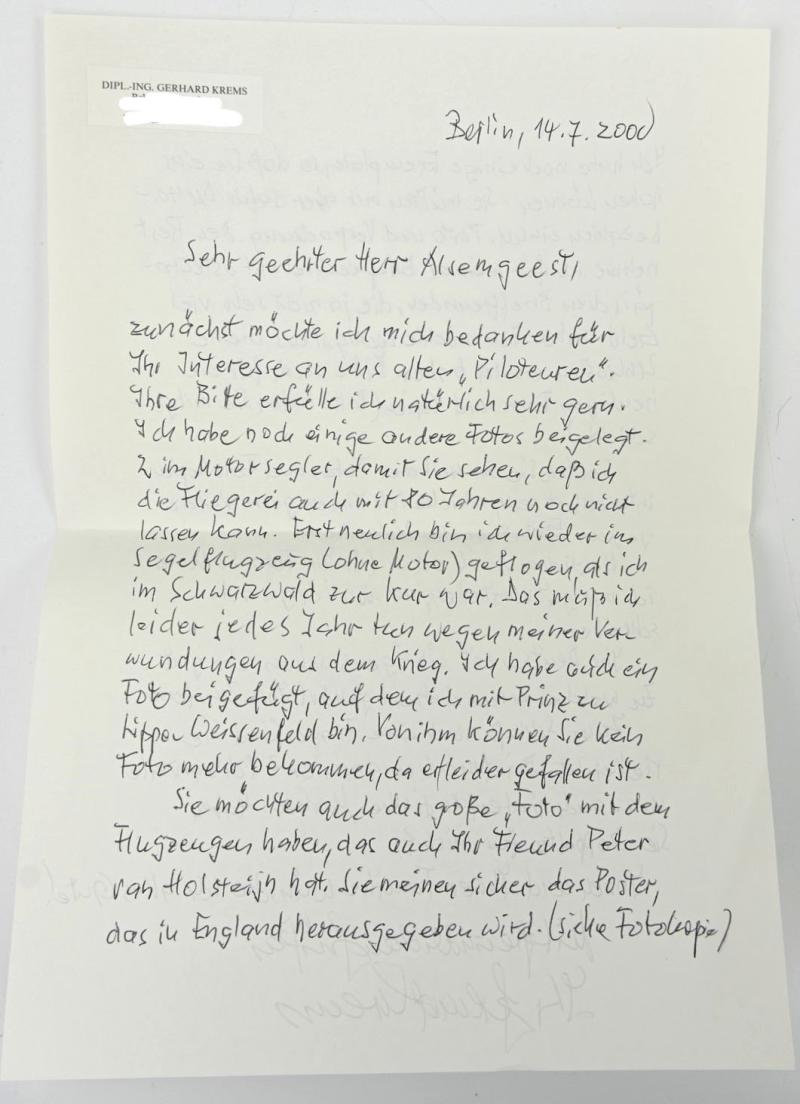 DIPL.-ING. GERHARD KREMS
Berlin, 14.7.2000
Sehr geehrter Herr Alsemgeest,
zunächst möchte ich mich bedanken für
Ihr Interesse an uns alten „Piloteuren“.
Ihre Bitte erfülle ich natürlich sehr gern.
Ich habe noch einige andere Fotos beigelegt.
2 im Motorsegler, damit Sie sehen, daß ich
die Fliegerei auch mit 80 Jahren noch nicht
lassen kann. Erst neulich bin ich wieder im
Segelflugzeug (ohne Motor) geflogen, als ich
im Schwarzwald zur Kur war. Das muß ich
leider jedes Jahr tun wegen meiner Ver
wundungen aus dem Krieg. Ich habe auch ein
Foto beigefügt, auf dem ich mit Prinz zu
Lippe Weissenfeld bin. Von ihm können Sie kein
Foto mehr bekommen, da er leider gefallen ist.
Sie möchten auch das große „Foto“ mit dem
Flugzeugen haben, das auch Ihr Freund Peter
van Holsteijn hat. Sie meinen sicher das Poster,
das in England herausgegeben wird. (siehe Fotokopie)